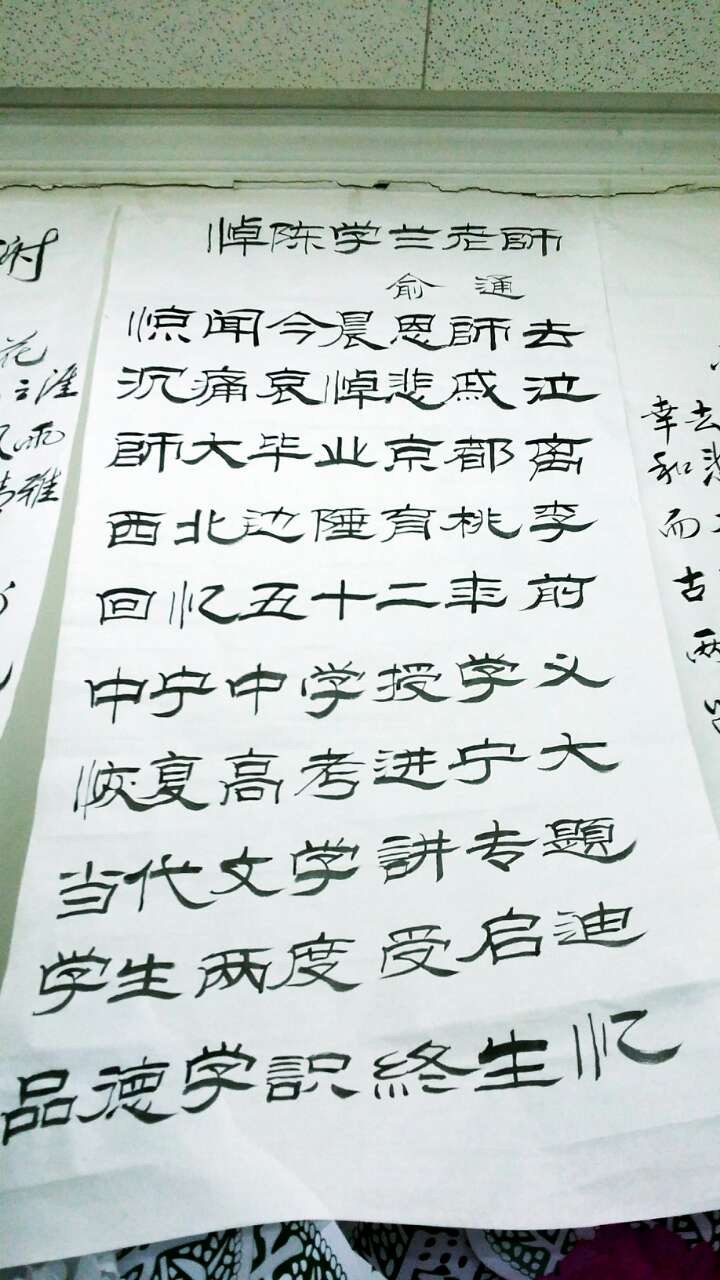 悼陈学兰老師
俞通
惊闻今晨恩師去
沉痛哀悼悲戚泣
師大毕业京都离
西北边陲育桃李
回忆五十二年前
中宁中学授学义
恢复高考进宁大
当代文学講专题
学生两度受启迪
品德学識終生忆
谢
花
淮
雨
雅
幸去
和悲
而
古
两